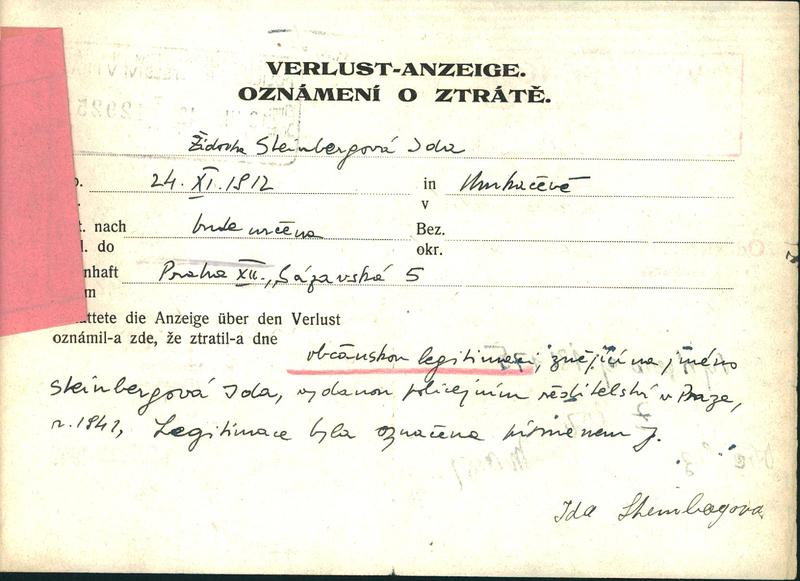 VERLUST-ANZEIGE.
OZNÁMENÍ O ZTRÁTĚ.
Židovka Steinbergová Ida
24. XI. 1912 in Munkačevě
v
nach bude určena Bez.
do okr.
haft Praha XII., Sázavská 5
die Anzeige über den Verlust
oznámil-a zde, že ztratil-a dne
občanskou legitimaci, znějící na jméno
Steinbergová Ida, vydanou policejním ředitelství v Praze,
r. 1941, Legitimace byla označena písmenem J.
Ida Steinbergova